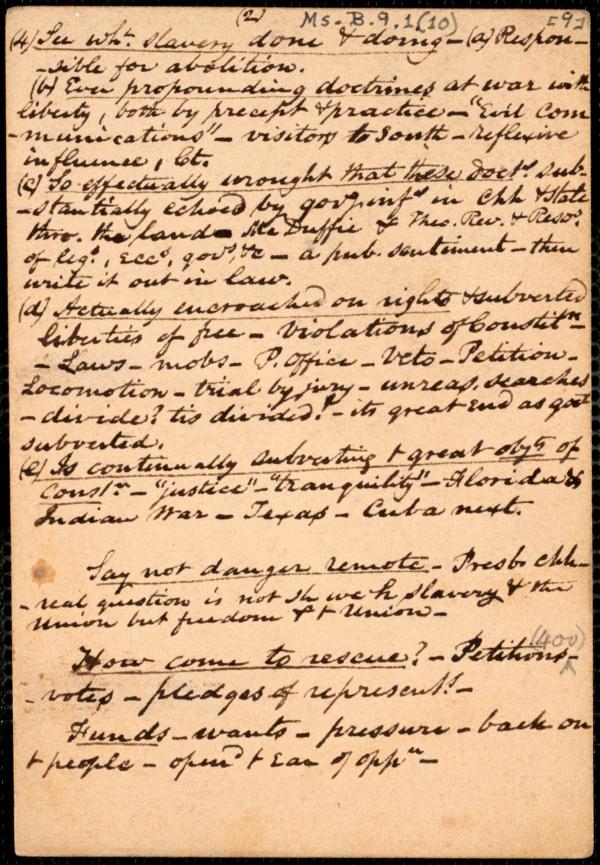 (2) Ms. B.9.1(10) [9]
(4) See wht. slavery done & doing - (a) Respon-
-sible for abolition.
(b) Ever propounding doctrines at war with
liberty, both by precept & practice - "Evil com
-munications" - visitors to South - reflexive
influence, &c.
(c) So effectually wrought that these Docts. sub-
-stantially echoed by govg. infs. in Chh & State
thro. the land - McDuffie & Theo. Rev. & Resos.
of legs., Eccs., govs. &c - a pub. sentiment - then
write it out in law.
(d) Actually encroached on rights & subverted
liberties of free - Violations of Constitn -
- Laws - mobs - P. Office - Veto - Petition -
Locomotion - trial by jury - unreas. searches
- divide? tis divided! - its great End as govt
subverted.
(e) Is continually subverting t great objts of
Constn - "justice" - "tranquility" - Florida &
Indian War - Texas - Cuba next.
Say not danger remote - Presb. Chh -
- real question is not sh we h slavery & the
Union but freedom & t Union -
(400)
How come to rescue? - Petitions -
- votes - pledges of represents. -
Funds - wants - pressure - back on
t people - opend t Ear of oppn -